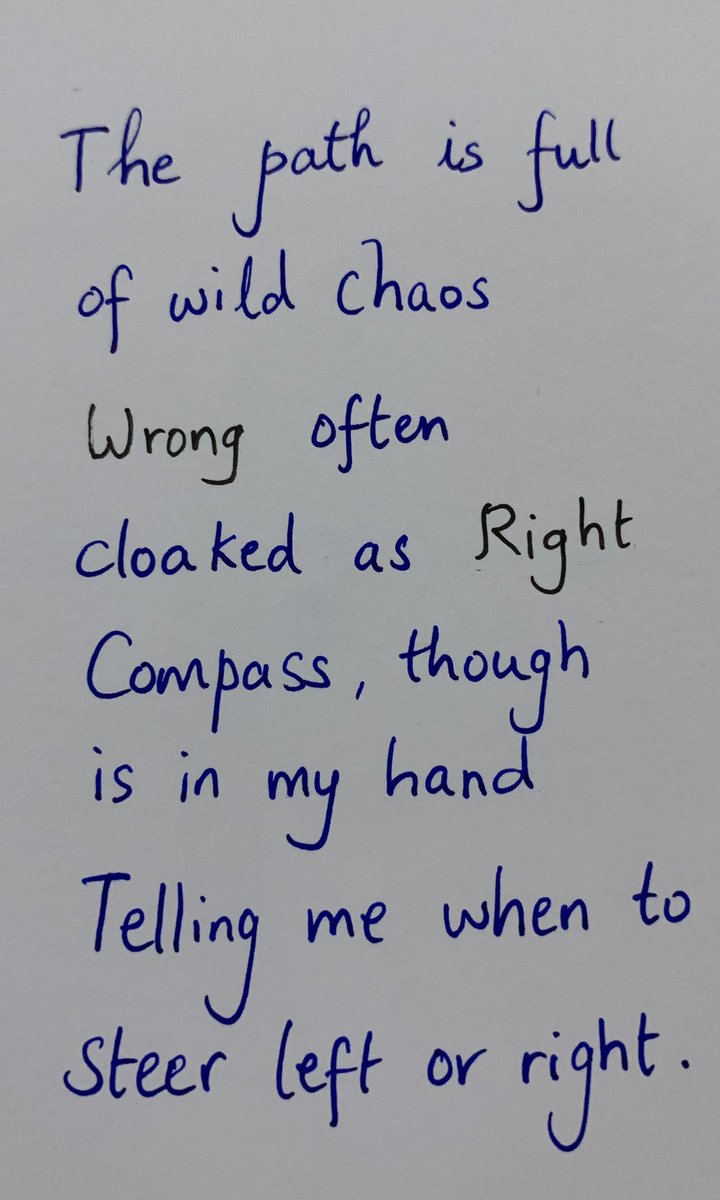 The path is full
of wild chaos
Wrong often
cloaked as Right
Compass, though
is in my hand
Telling me when to
steer left or right.